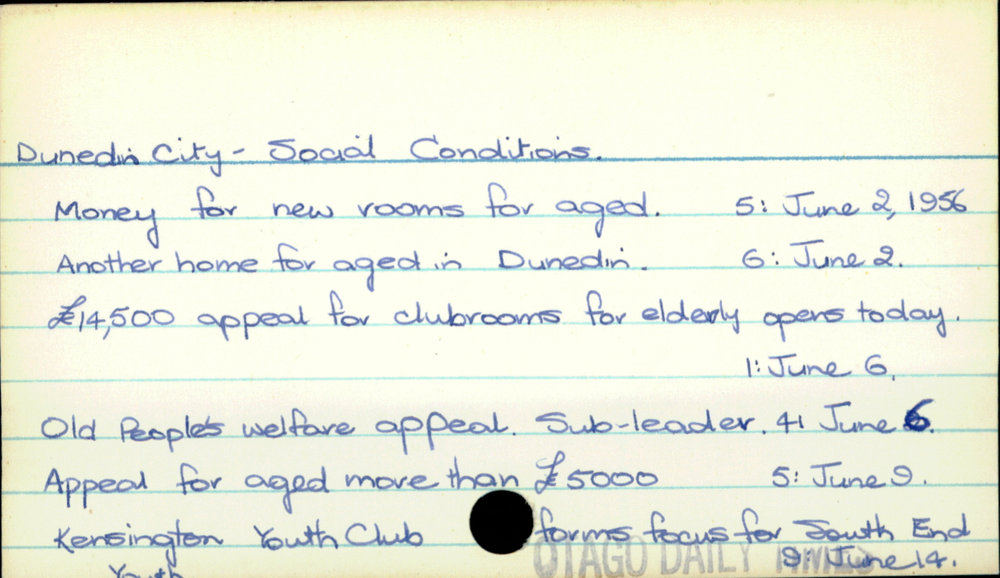 Dunedin City - Social Conditions.
Money for new rooms for aged. 5: June 2, 1956
Another home for aged in Dunedin. 6: June 2.
£14,500 appeal for clubrooms for elderly opens today.
1: June 6.
Old People's welfare appeal. Sub-leader. 41 June 6.
Appeal for aged more than £5000 5: June 9.
Kensington Youth Club forms focus for South End
9: June 14.
OTAGO DAILY TIMES
Youth